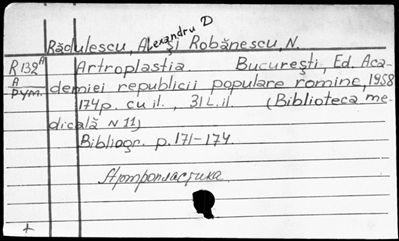 Rădulescu, Alexandru D și Robănescu, N.
R 132 A Artroplastia. București, Ed. Aca-
A demiei republicii populare romine, 1958
рум. 174 p. cu il., 31 L. il (Biblioteca me-
dicală N 11)
Bibliogr. p. 171-174.
Артропластика